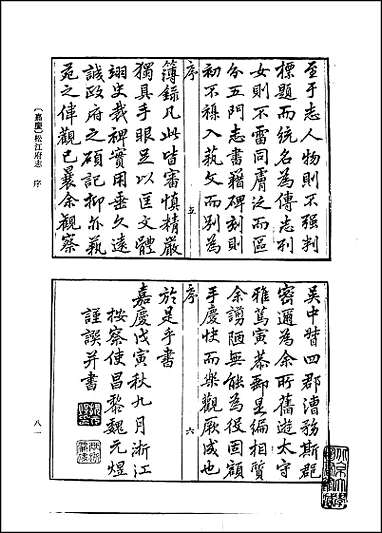 至于志人物則不强判
標題而統名為傳志列
女則不雷同膚泛而區
分五門志書籍碑刻則
初不摻入藝文而別為
序
五
簿錄凡此皆審慎精嚴
獨具手眼足以匡文體
翊史裁裨實用垂久遠
誠政府之碩記抑亦藝
苑之偉觀已曩余觀察
〔嘉慶〕松江府志 序
吳中督四郡漕務斯郡
密邇為余所舊遊太守
雅篤寅恭郵呈編相質
余謭陋無能為役固顧
手慶快而樂觀厥成也
序
六
於是乎書
嘉慶戊寅秋九月浙江
按察使昌黎魏元煜
謹譔并書
八一